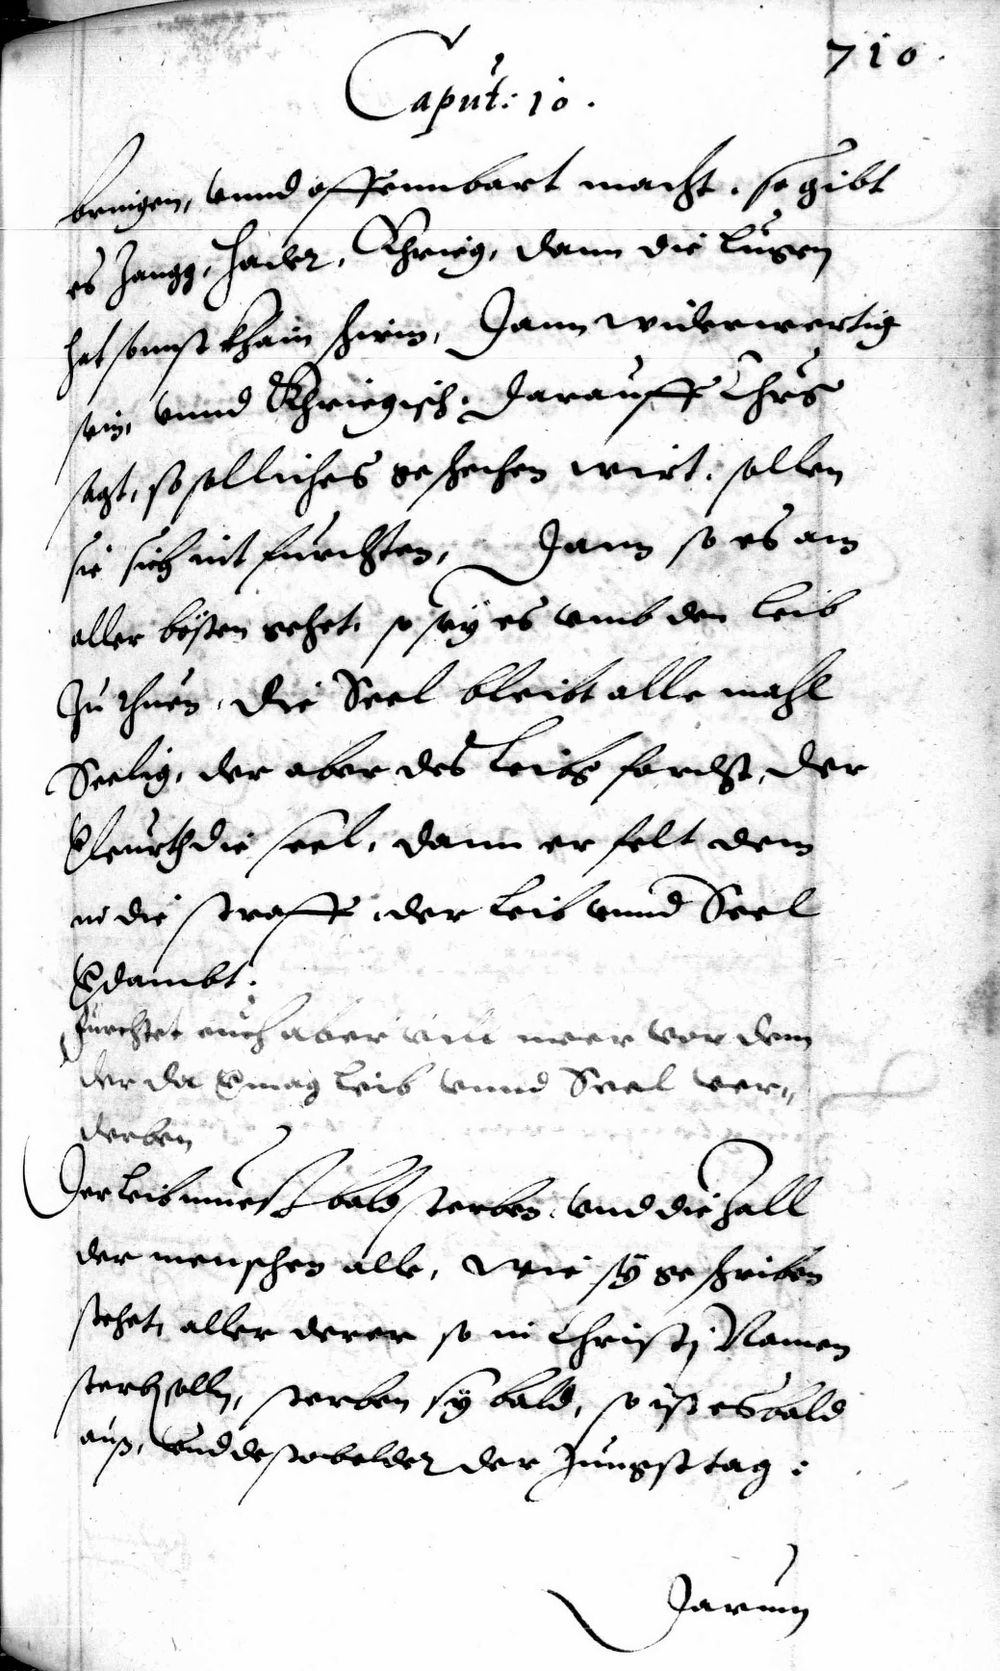 710.
Caput: 10.
bringen, vnnd offennbart macht. so gibt
es Zangg, hader, Khrieg, dann die lugen
hat sonnst khain schirm, Dann widerwertig
sein, vnnd Khriegisch. Darauff Chrs
sagt, so solliches geschehen wirt. sollen
sie sich nit furchten, Dann so es am
aller bösten gehet. so sey es vmb den Leib
Zu thuen, die Seel bleibt alle mahl
Seelig, der aber des Leibs forcht, der
verleurth die seel, dann er felt dem
in die straff, der Leib vnnd Seel
verdambt.
furchtet euch aber vill meer vor dem
der da vermag Leib vnnd Seel ver„
derben
Der Leib muess bald sterben. vnd die Zall
der menschen alle, wie sy geschriben
stehet, aller derer so in Christi Namen
sterben sollen, sterben sy bald, so ist es bald
auß, vnd desto belder der Jungst tag:
Darumb